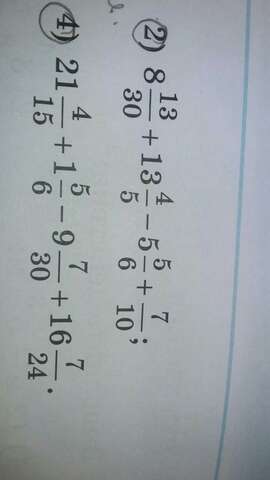 2) 8 13/30 + 13 4/5 − 5 5/6 + 7/10;
4) 21 4/15 + 1 5/6 − 9 7/30 + 16 7/24.